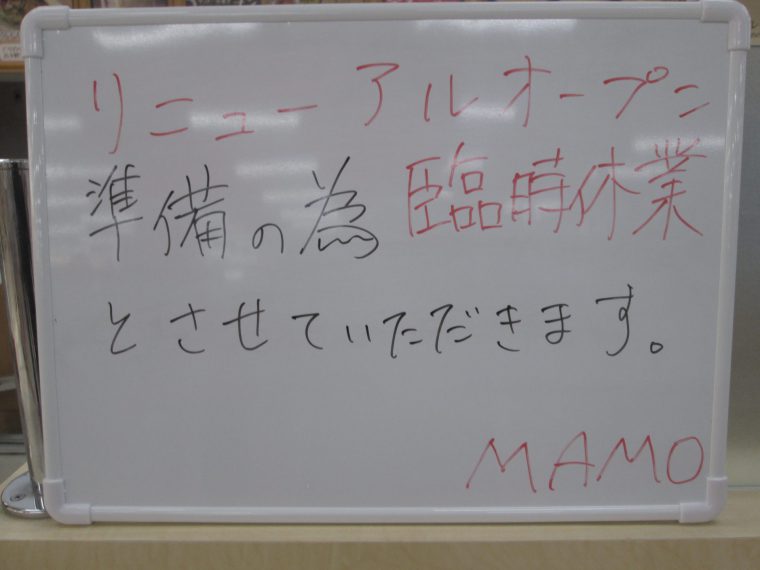 リニューアルオープン
準備の為 臨時休業
とさせていただきます。
MAMO